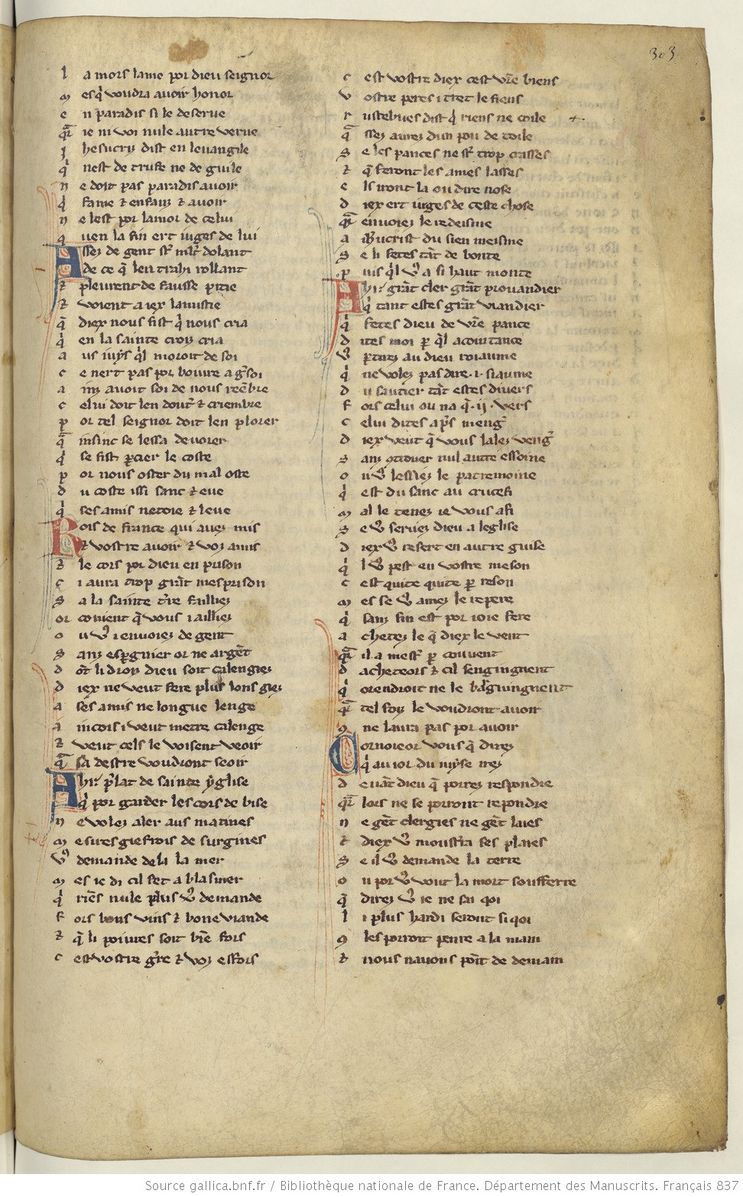 303
l a mors lame por dieu seignor
m es q̄ voudra avoir honor
e n paradis si le deserve
q̄r ie ni voi nule autre verve
i hesucris dist en levangile
q̄ nest de truffe ne de guile
n e doit pas paradis avoir
q̄ fame et enfanz et avoir
n e lest por lamor de celui
q uen la fin ert iuges de lui
A ssez de gent st mlt dolant
de ce q̄ len trahi rollant
et pleurent de fausse pitie
et voient a iex lamistie
q̄ diex nous fist q̄ nous cria
q̄ en la sainte croiz cria
a us iuys ql moroit de soi
c e nert pas por boivre a gsoi
a inz avoit soi de nous reēbre
c elui doit len dout et criembre
p or tel seignor doit len plorer
q̄ insinc se lessa devorer
q̄ se fist pcier le coste
p or nous oster du mal oste
d u coste issi sanc et eve
q̄ ses amis netoie et leve
R ois de france qui avez mis
et vostre avoir et voz amis
et le cors por dieu en prison
c i aura trop grāt mesprison
s a la sainte tre failliez
or covient q̄ vous i ailliez
o u v9 i envoiez de gent
s anz espgnier or ne argēt
d ōt li droiz dieu soit calengiez
d iex ne veut fere plus lons giez
a ses amis ne longue lenge
a incois i veut metre calenge
et veut cels le voisent veoir
q̄ sa destre voudront seoir
A hi plat de sainte yglise
q̄ por garder les cors de bise
n e volez aler aus matines
m esires giefrois de surgines
v9 demande dela la mer
m es ie di cil fet a blasmer
q̄ riēs nule plus v9 demande
f ors bons vins et bone viande
et q̄ li poivres soit biē fors
c est vostre gre et voz esfors
c est vostre diex cest vre biens
v ostre peres i tret le fiens
r ustebues dist q̄ riens ne coile
q̄ ssez aurez dun pou de toile
s e les pances ne st trop crasses
et q̄ feront les ames lasses
e ls iront la ou dire nose
d iex ert iuges de ceste chose
q̄r envoiez le redeisme
a ihucrist du sien meisme
s e li fetes tāt de bonte
p uis ql v9 a si haut monte
A hi grāt cler grāt provandier
q̄ tant estes grāt viandier
q̄ fetes dieu de vre pance
d ites moi p ql acointance
v9 ptirez au dieu roiaume
q̄ ne volez pas dire .i. siaume
d u sautier tāt estes divers
f ors celui ou na q̄ .ii. vers
c elui dites aps meng
d iex veut q̄ vous lalez veng
s anz otrover nul autre essoine
o u v9 lessiez le patremoine
q̄ est du sanc au crucefi
m al le tenez ie vous afi
s e v9 servez dieu a leglise
d iex v9 resert en autre guise
q̄ l v9 pest en vostre meson
c est quite quite p reson
m es se v9 amez le repere
q̄ sanz fin est por ioie fere
a chetez le q̄ diex le vent
q̄r il a mest p couvent
d acheteors et cil sengingnent
q̄ orendroit ne le bargaingnent
q̄r tel foiz le voudront avoir
q̄ ne laura pas por avoir
T ornoieor vous q̄ direz
q̄ au ior du iuyse irez
d evāt dieu q̄ porrez respondre
q̄r lors ne se porront repondre
n e gēt clergies ne gēt laies
et diex v9 moustra ses plaies
s e il v9 demande la terre
o u por v9 vout la mort soufferre
q̄ direz v9 ie ne sai qoi
l i plus hardi seront si qoi
q̄ les porroit penre a la main
et nous navons poīt de demain
Source gallica.bnf.fr / Bibliothèque nationale de France. Département des Manuscrits. Français 837